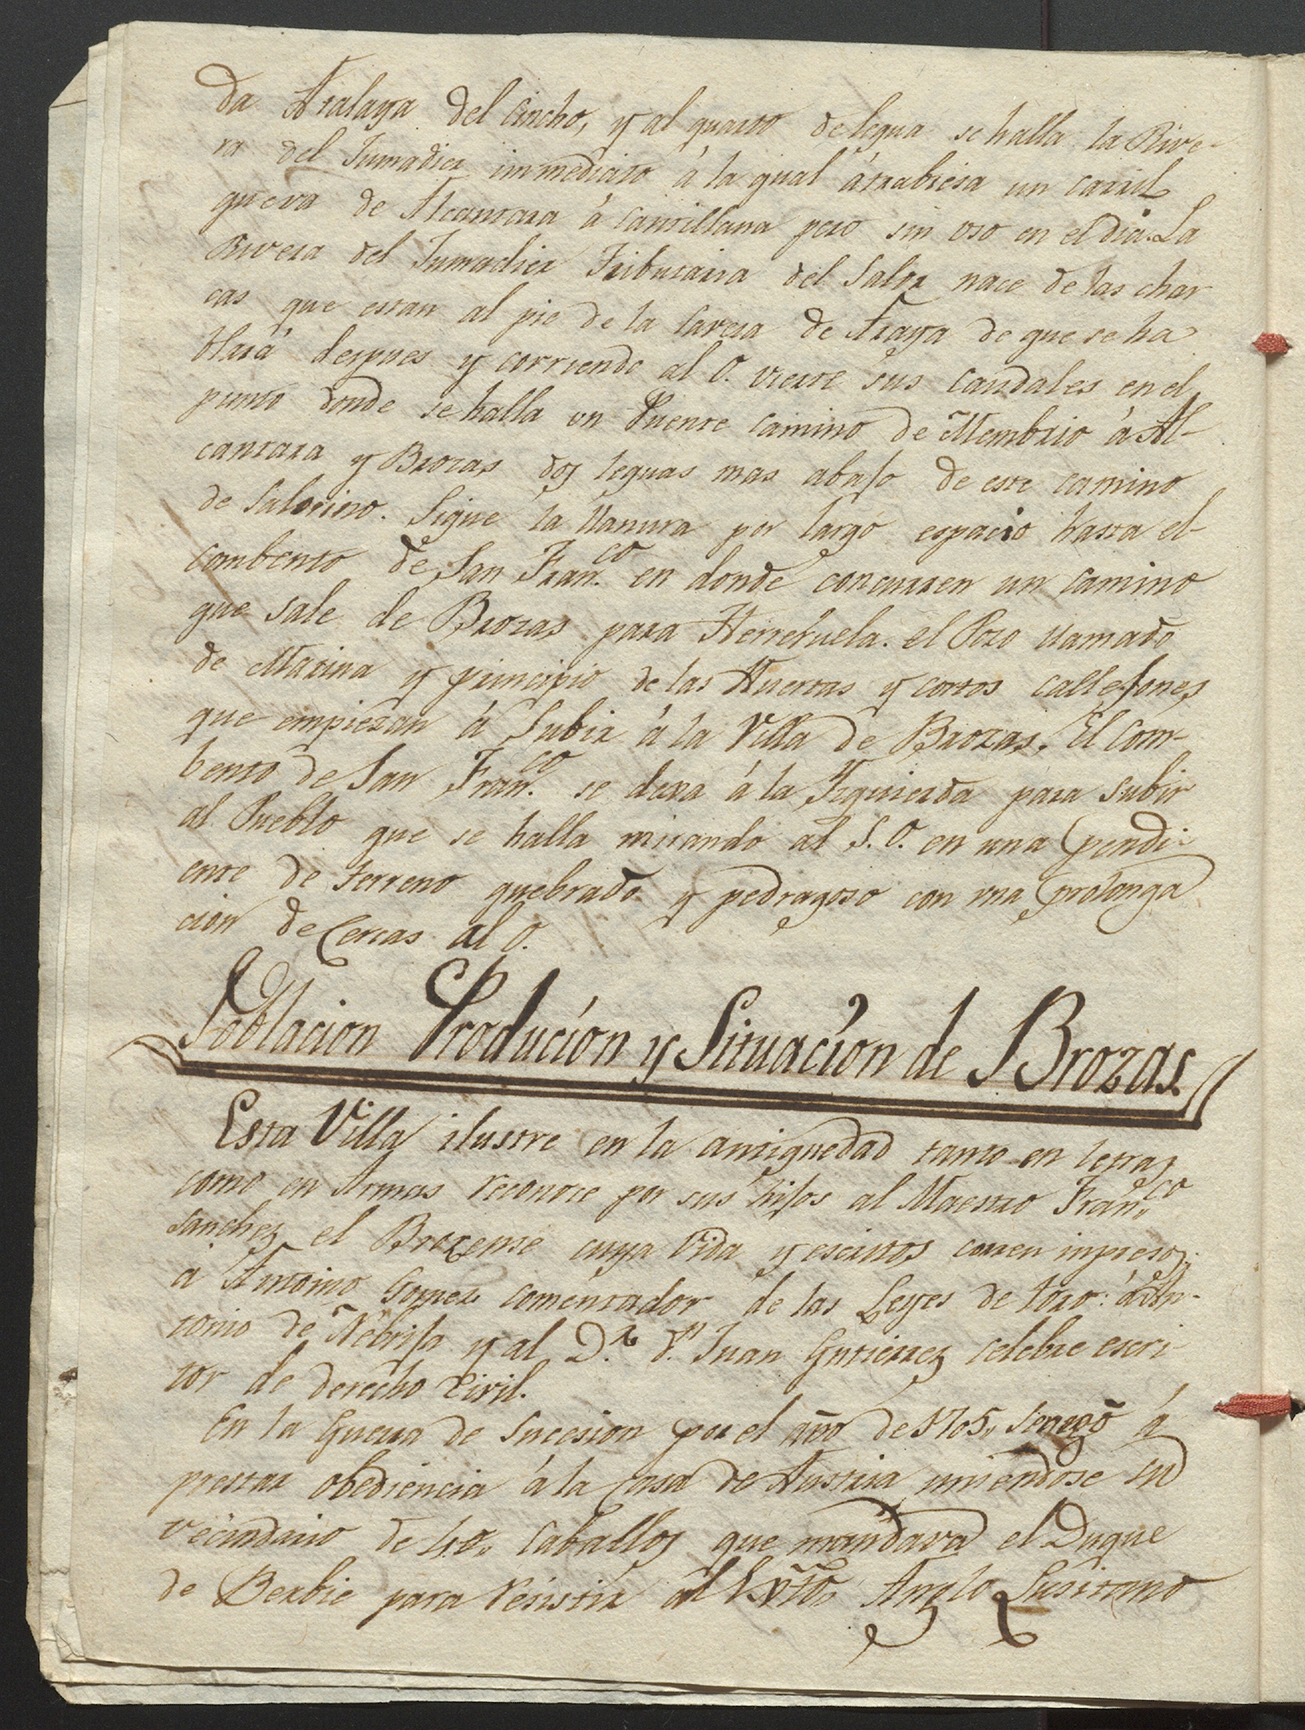 da Atalaya del Cincho, y al quarto de legua se halla la Rive-
ra del Jumadiez immediato à la qual átrabiesa un carril
que va de Alcantara à Cantillana pero sin uso en el dia. La
Rivera del Jumadiez Tributaria del Salor nace de las char
cas que estan al pie de la Cerca de Araya de que se ha
blará despues y corriendo al O. vierte sus caudales en el
punto donde se halla un Puente camino de Membrio à Al-
cantara y Brozas dos leguas mas abajo de este camino
de Salorino. Sigue la llanura por largo espacio hasta el
combento de San Fran.co en donde concurren un camino
que sale de Brozas para Herreruela. el Pozo llamado
de Marina y principio de las Huertas y cortos callejones
que empiezan á Subir á la Villa de Brozas. El Com-
bento de San Fran.co se dexa á la Izquierda para subir
al Pueblo que se halla mirando al S.O. en una pendi-
ente de terreno quebrado y pedragoso con una prolonga
cion de Cercas al O.
Poblacion Producion y Situacion de Brozas.
Esta Villa ilustre en la antiguedad tanto en letras
como en Armas reconoce por sus hijos al Maestro Fran.co
Sanchez el Brozense cuya vida y escritos corren impresos:
á Antonio Gomez comentador de las Leyes de Toro: á An-
tonio de Nebrija y al D.r D.n Juan Gutierrez celebre escri-
tor de derecho Civil.
En la Guerra de Sucesion por el año de 1705, se negó á
prestar obediencia á la Casa de Austria uniendose su
vecindario de 40, Caballos que mandava el Duque
de Berbic para resistir al Exto, Anglo Lusitano